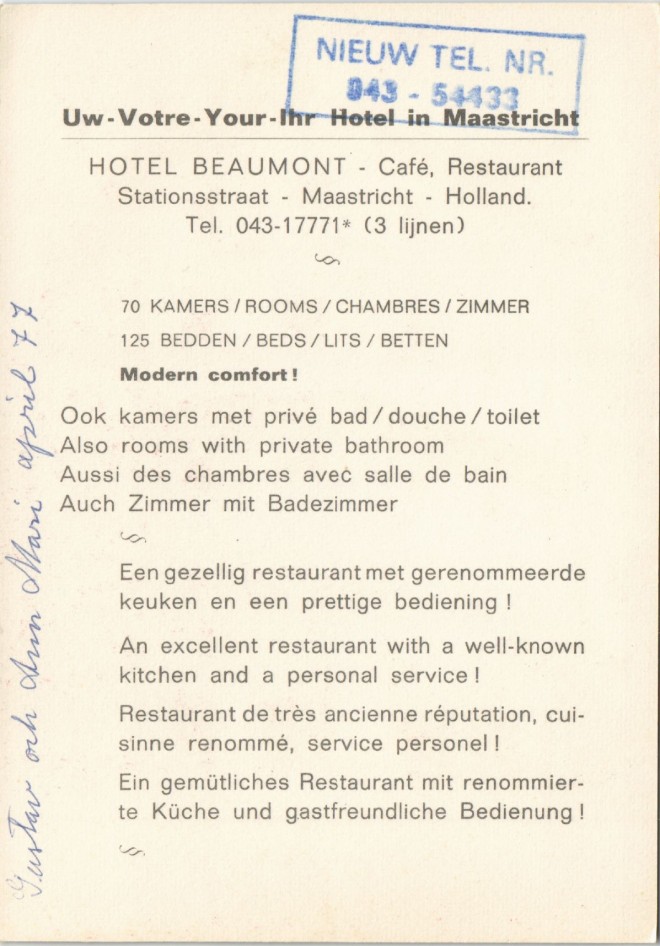 NIEUW TEL. NR.
043 - 54433
Uw-Votre-Your-Ihr Hotel in Maastricht
HOTEL BEAUMONT - Café, Restaurant
Stationsstraat - Maastricht - Holland.
Tel. 043-17771* (3 lijnen)
70 KAMERS / ROOMS / CHAMBRES / ZIMMER
125 BEDDEN / BEDS / LITS / BETTEN
Modern comfort!
Ook kamers met privé bad / douche / toilet
Also rooms with private bathroom
Aussi des chambres avec salle de bain
Auch Zimmer mit Badezimmer
Een gezellig restaurant met gerenommeerde
keuken en een prettige bediening !
An excellent restaurant with a well-known
kitchen and a personal service !
Restaurant de très ancienne réputation, cui-
sinne renommé, service personel !
Ein gemütliches Restaurant mit renommier-
te Küche und gastfreundliche Bedienung !
Gustav och Ann Mari april 77